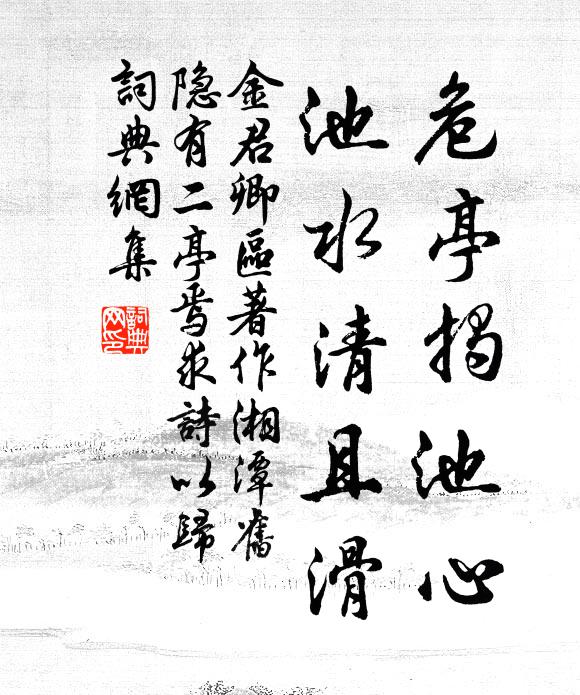 危亭揭池心
池水清且滑
金君卿區著作湘潭舊
隐有二亭焉求詩以歸
詞典網集
詞典
网印